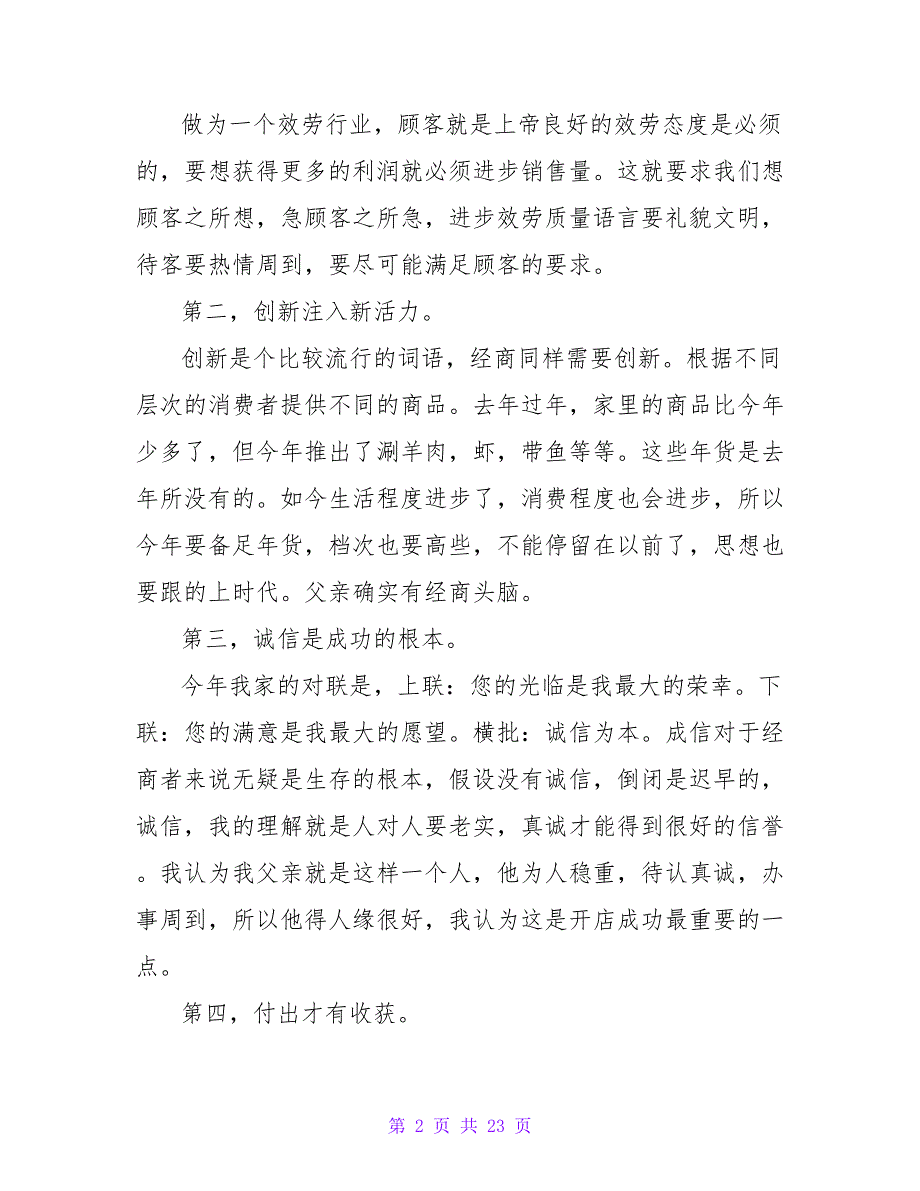 做为一个效劳行业，顾客就是上帝良好的效劳态度是必须
的，要想获得更多的利润就必须进步销售量。这就要求我们想
顾客之所想，急顾客之所急，进步效劳质量语言要礼貌文明，
待客要热情周到，要尽可能满足顾客的要求。
第二，创新注入新活力。
创新是个比较流行的词语，经商同样需要创新。根据不同
层次的消费者提供不同的商品。去年过年，家里的商品比今年
少多了，但今年推出了涮羊肉，虾，带鱼等等。这些年货是去
年所没有的。如今生活程度进步了，消费程度也会进步，所以
今年要备足年货，档次也要高些，不能停留在以前了，思想也
要跟的上时代。父亲确实有经商头脑。
第三，诚信是成功的根本。
今年我家的对联是，上联：您的光临是我最大的荣幸。下
联：您的满意是我最大的愿望。横批：诚信为本。成信对于经
商者来说无疑是生存的根本，假设没有诚信，倒闭是迟早的，
诚信，我的理解就是人对人要老实，真诚才能得到很好的信誉
。我认为我父亲就是这样一个人，他为人稳重，待认真诚，办
事周到，所以他得人缘很好，我认为这是开店成功最重要的一
点。
第四，付出才有收获。
第 2 页 共 23 页